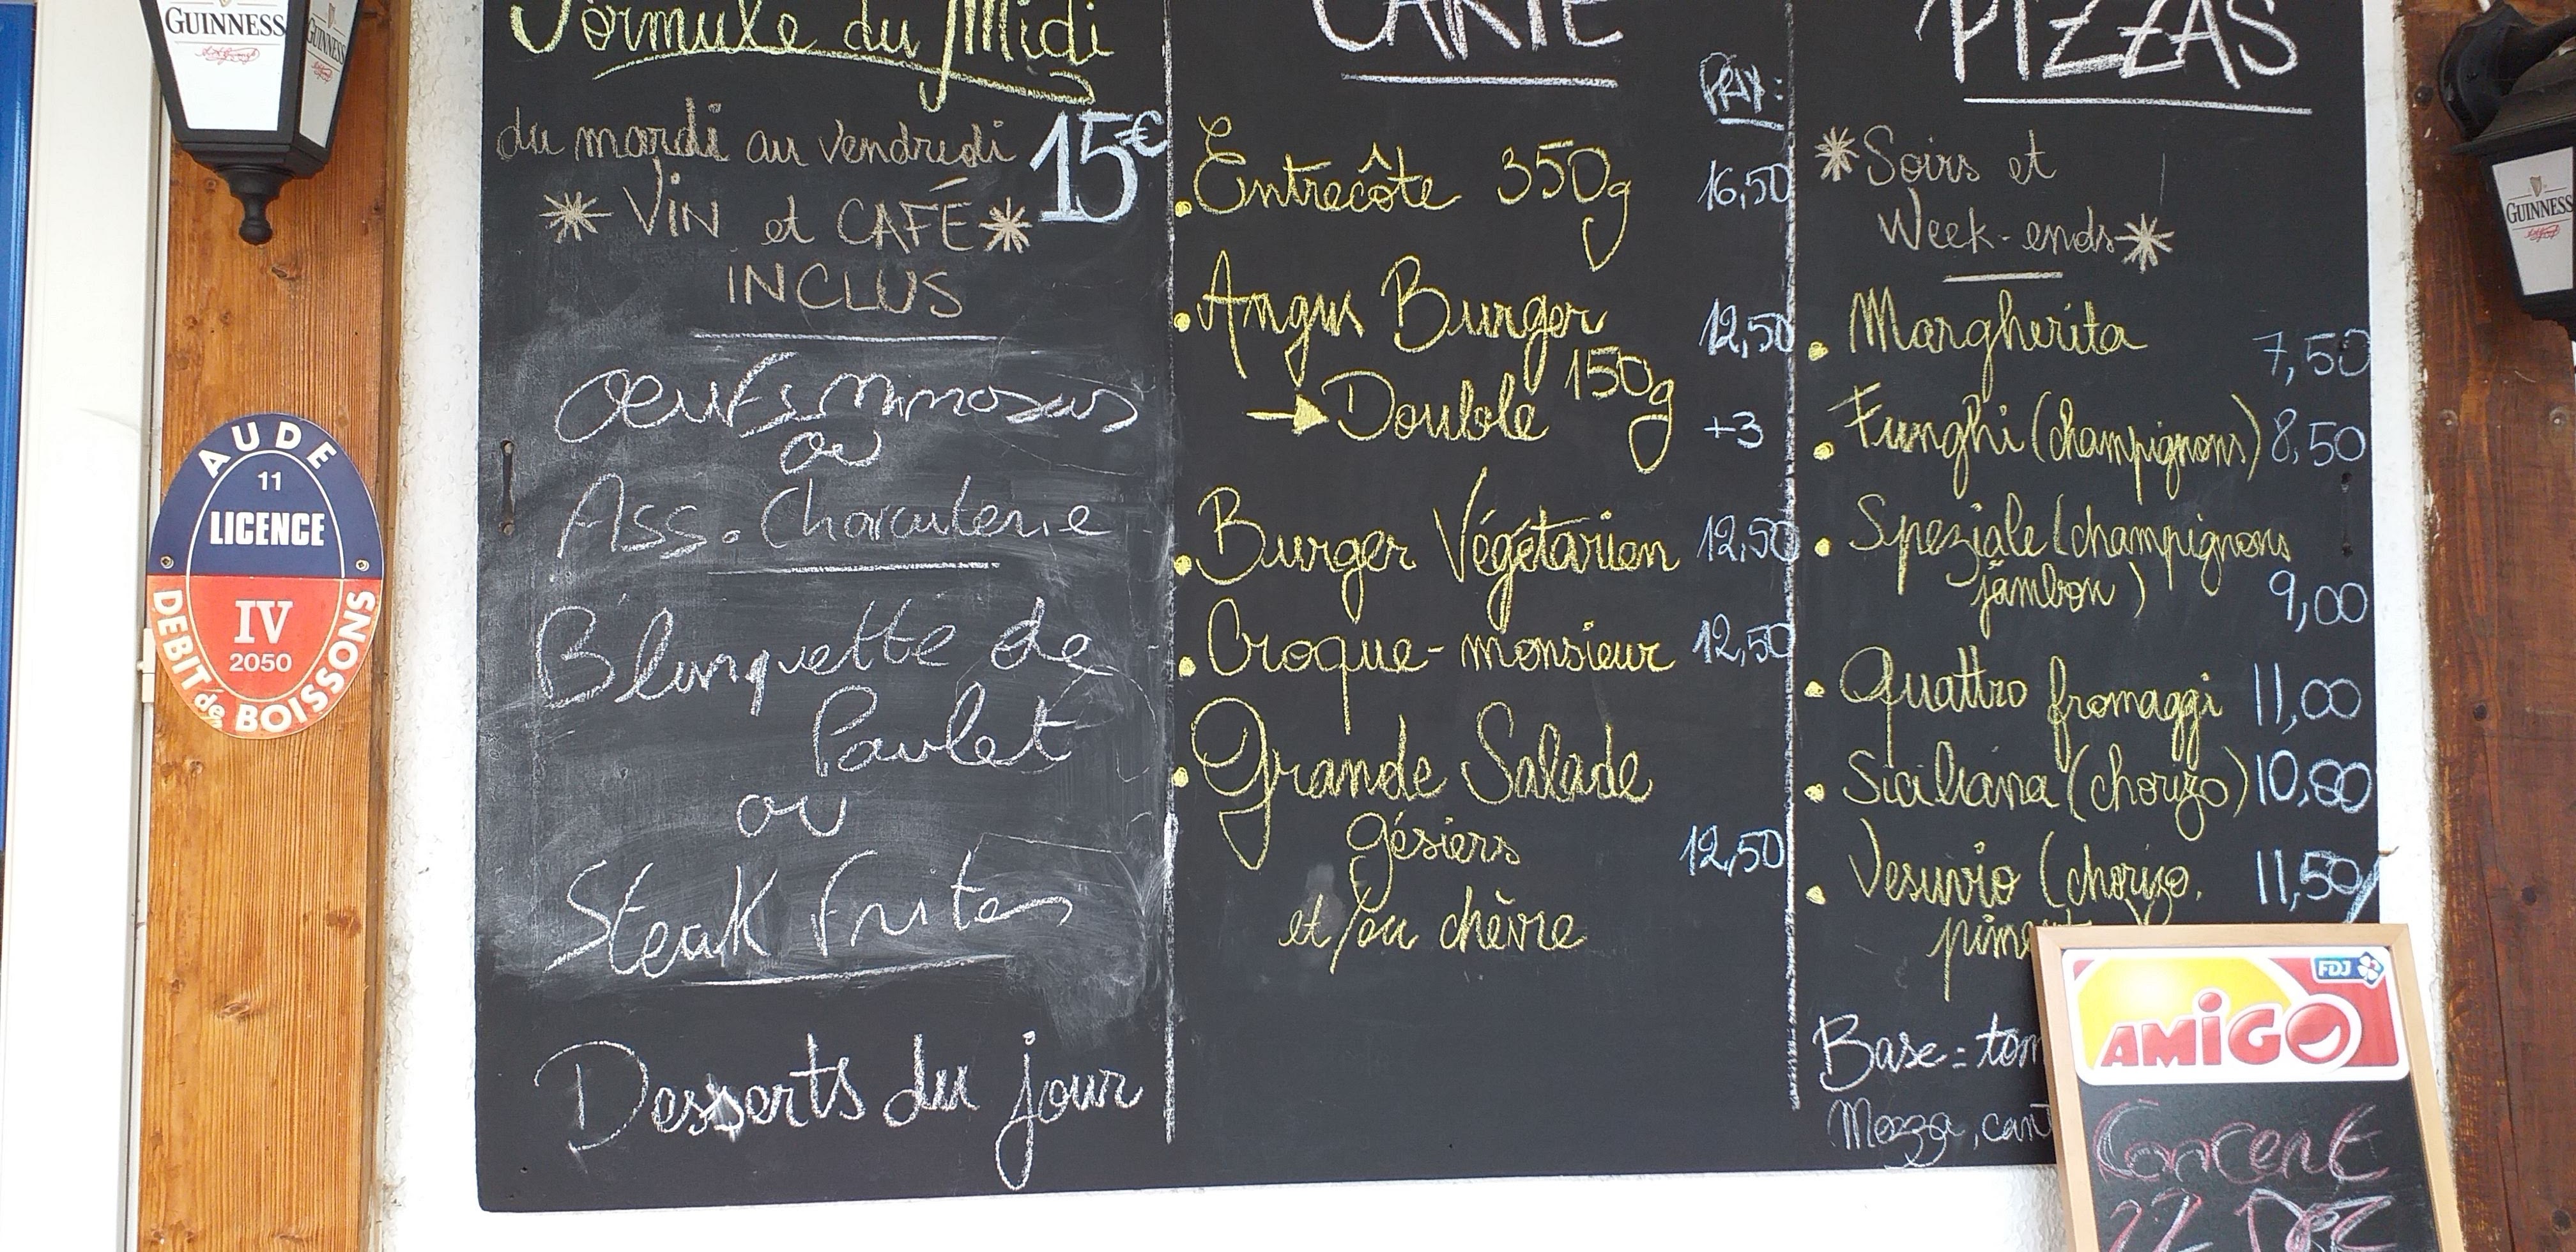 GUINNESS
GUINNESS
AUDE
11
LICENCE
IV
2050
DEBIT de BOISSONS
Formule du Midi
du mardi au vendredi 15€
* VIN et CAFÉ *
INCLUS
Oeufs mimosas
ou
Ass. Charcuterie
Blanquette de
Poulet
ou
Steak frites
Desserts du jour
CARTE
PRIX:
Entrecôte 350g 16,50
Angus Burger 12,50
150g
→ Double +3
Burger Végétarien 12,50
Croque-monsieur 12,50
Grande Salade
gésiers 12,50
et/ou chèvre
PIZZAS
*Soirs et
Week-ends*
Margherita 7,50
Funghi (champignons) 8,50
Speziale (champignons
jambon) 9,00
Quattro fromaggi 11,00
Siciliana (chorizo)
Vesuvio (chorizo, 11,50
Base = tom
Mozza, cant
GUINNESS
FDJ
AMIGO
Concert